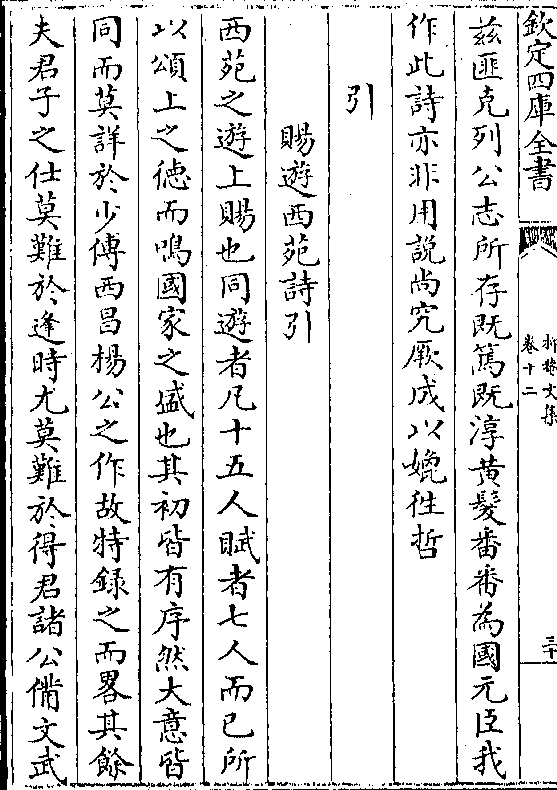 欽定四庫全書
抑菴文集
卷十二
三十
兹匪克列公志所存既篤既淳黄髮番番為國元臣我
作此詩亦非用説尚究厥成以媲徃哲
引
賜遊西苑詩引
西苑之遊上賜也同遊者凡十五人賦者七人而已所
以頌上之徳而鳴國家之盛也其初皆有序然大意皆
同而莫詳於少傅西昌楊公之作故特録之而畧其餘
夫君子之仕莫難於逢時尤莫難於得君諸公備文武